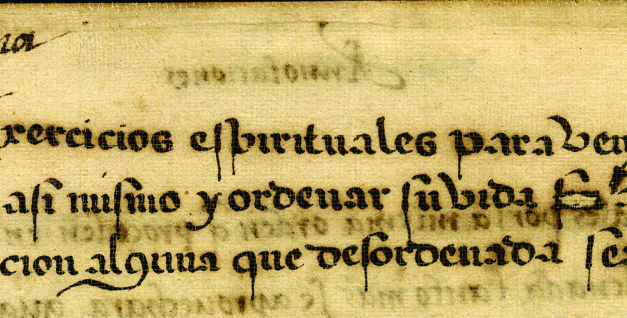 na
xercicios espirituales para ven
asi mismo y ordenar su vida
cion alguna que desordenada se